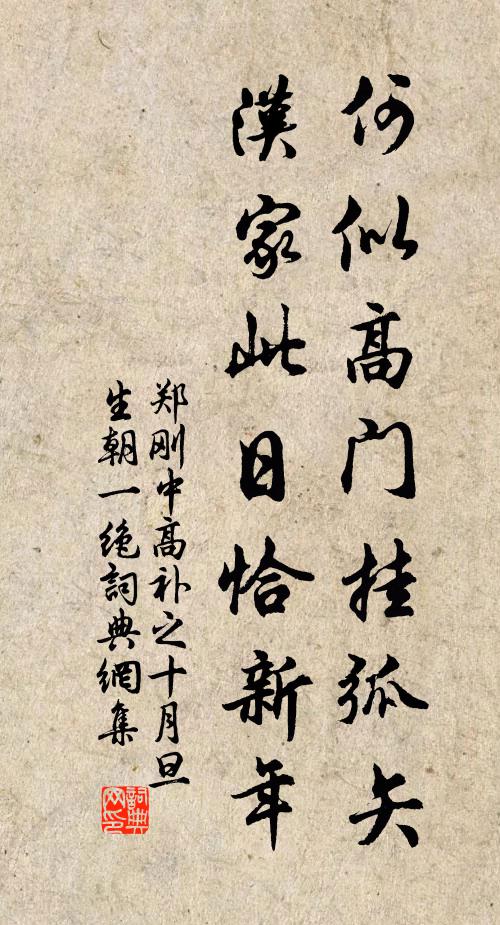 何似高門挂弧矢
漢家此日恰新年
郑刚中高补之十月旦
生朝一绝詞典網集
詞典
网印